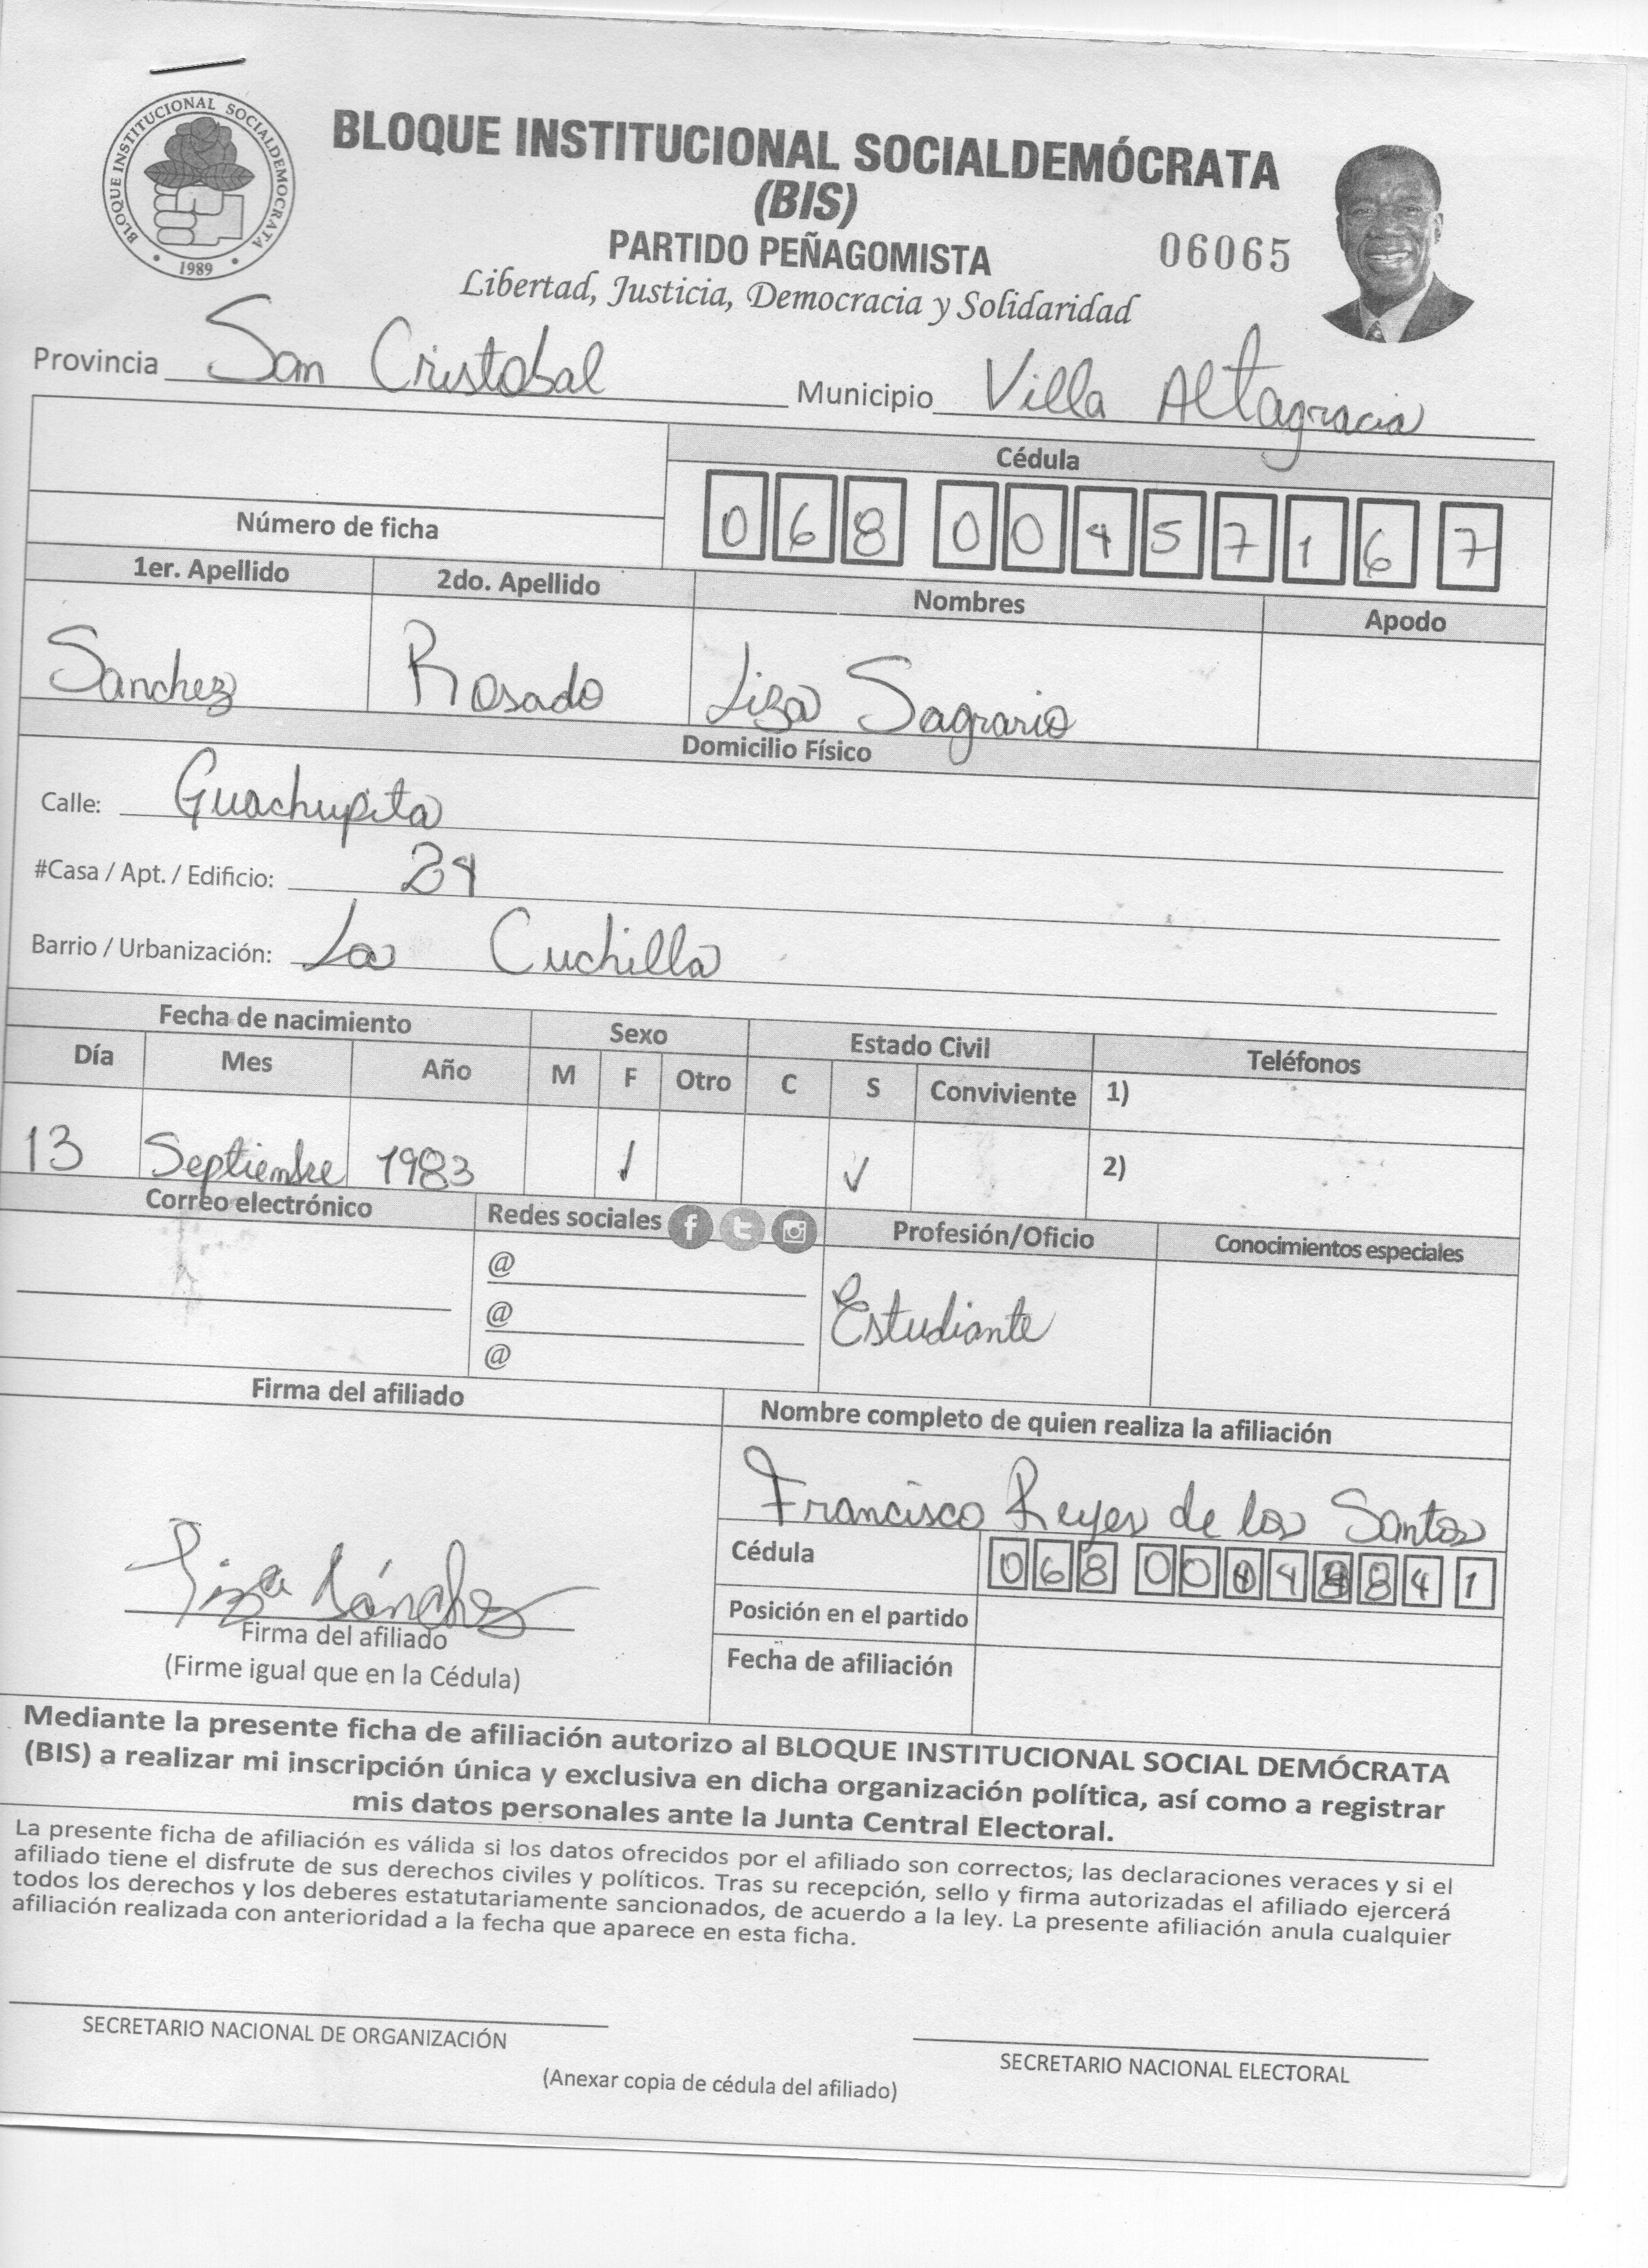 BLOQUE INSTITUCIONAL SOCIALDEMOCRATA
1989
BLOQUE INSTITUCIONAL SOCIALDEMÓCRATA
(BIS)
PARTIDO PEÑAGOMISTA
06065
Libertad, Justicia, Democracia y Solidaridad
Provincia San Cristobal Municipio Villa Altagracia
Cédula
068 0045716 7
Número de ficha
1er. Apellido 2do. Apellido Nombres Apodo
Sanchez Rosado Liza Sagrario
Domicilio Físico
Calle: Guachupita
#Casa / Apt. / Edificio: 24
Barrio / Urbanización: La Cuchilla
Fecha de nacimiento Sexo Estado Civil Teléfonos
Día Mes Año M F Otro C S Conviviente 1)
13 Septiembre 1983 ✓ ✓ 2)
Correo electrónico Redes sociales f t Profesión/Oficio Conocimientos especiales
@
@
@
Estudiante
Firma del afiliado
Nombre completo de quien realiza la afiliación
Francisco Reyes de los Santos
Cédula 068 00 4 84 1
Posición en el partido
Fecha de afiliación
Liza Sánchez
Firma del afiliado
(Firme igual que en la Cédula)
Mediante la presente ficha de afiliación autorizo al BLOQUE INSTITUCIONAL SOCIAL DEMÓCRATA
(BIS) a realizar mi inscripción única y exclusiva en dicha organización política, así como a registrar
mis datos personales ante la Junta Central Electoral.
La presente ficha de afiliación es válida si los datos ofrecidos por el afiliado son correctos; las declaraciones veraces y si el
afiliado tiene el disfrute de sus derechos civiles y políticos. Tras su recepción, sello y firma autorizadas el afiliado ejercerá
todos los derechos y los deberes estatutariamente sancionados, de acuerdo a la ley. La presente afiliación anula cualquier
afiliación realizada con anterioridad a la fecha que aparece en esta ficha.
SECRETARIO NACIONAL DE ORGANIZACIÓN
SECRETARIO NACIONAL ELECTORAL
(Anexar copia de cédula del afiliado)